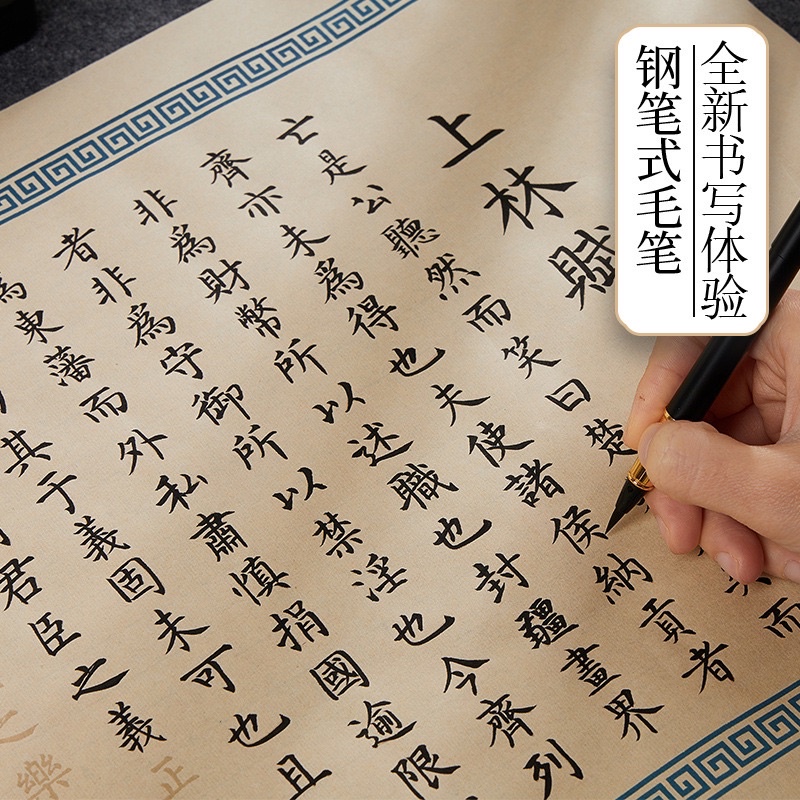 全新书写体验
钢笔式毛笔
上林賦
亡是公聽然而笑曰楚
而
齊亦未為得也夫使諸侯納貢者
非為財幣所以述職也封疆畫界
者非為守御所以禁淫也今齊列
為東藩而外私肅慎捐國逾限
其于義固未可也且
君臣之義正
樂